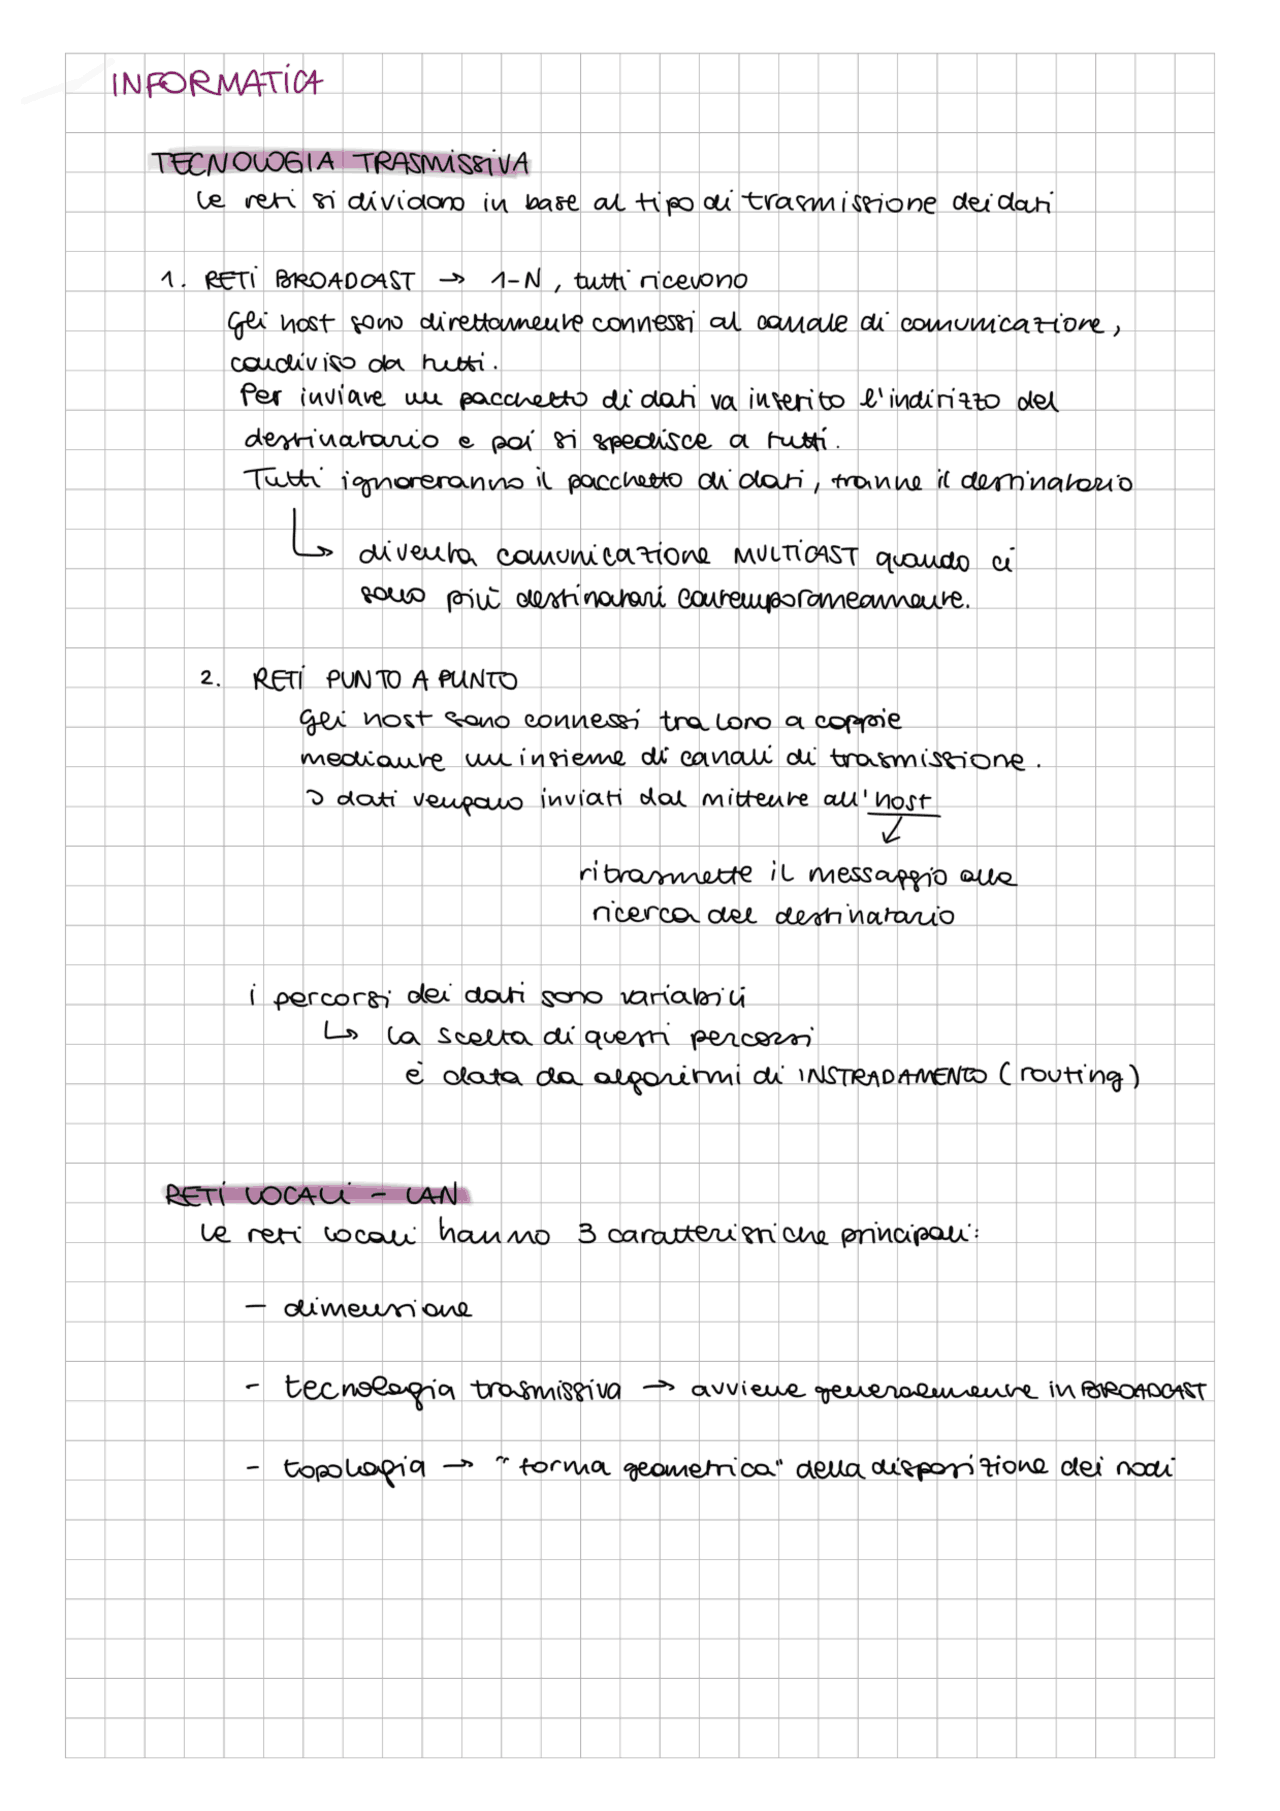 INFORMATICA
TECNOLOGIA TRASMISSIVA
Le reti si dividono in base al tipo di trasmissione dei dati
1. RETI BROADCAST → 1-N, tutti ricevono
Gli host sono direttamente connessi al canale di comunicazione,
condiviso da tutti.
Per inviare un pacchetto di dati va inserito l'indirizzo del
destinatario e poi si spedisce a tutti.
Tutti ignoreranno il pacchetto di dati, tranne il destinatario
↳ diventa comunicazione MULTICAST quando ci
sono più destinatari contemporaneamente.
2. RETI PUNTO A PUNTO
gli host sono connessi tra loro a coppie
mediante un insieme di canali di trasmissione.
I dati vengono inviati dal mittente all'host
ritrasmette il messaggio alla
ricerca del destinatario
i percorsi dei dati sono variabili
↳ la scelta di questi percorsi
è data da algoritmi di INSTRADAMENTO (routing)
RETI LOCALI - LAN
Le reti locali hanno 3 caratteristiche principali:
- dimensione
- tecnologia trasmissiva → avviene generalmente in BROADCAST
- topologia → "forma geometrica" della disposizione dei nodi